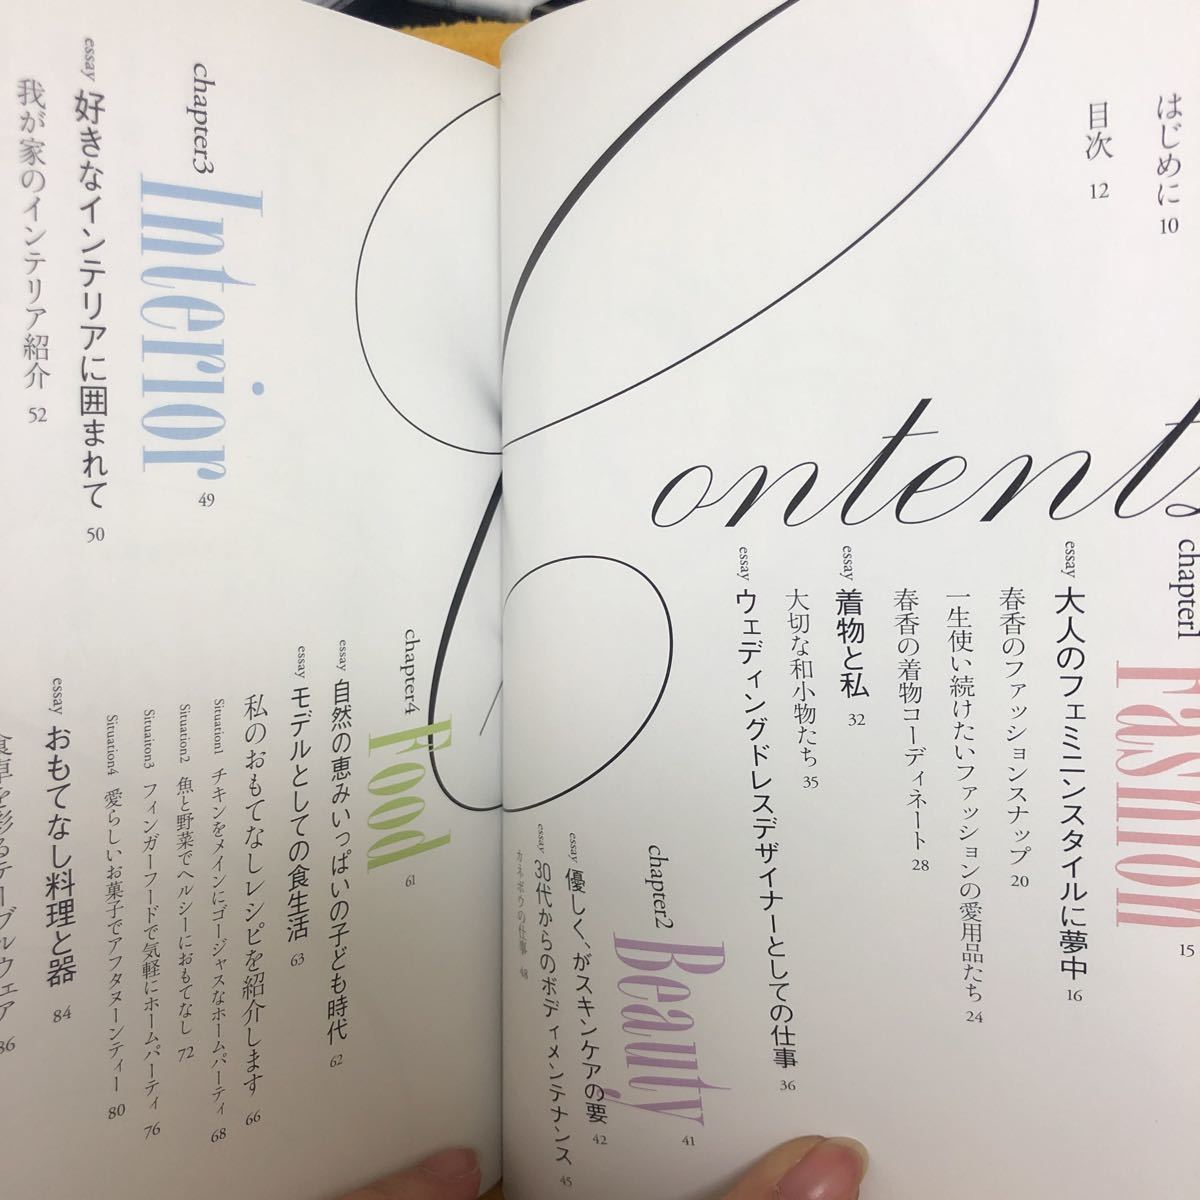 はじめに 10
目次 12
Contents
chapter1 Fashion 15
essay 大人のフェミニンスタイルに夢中 16
春香のファッションスナップ 20
一生使い続けたいファッションの愛用品たち 24
春香の着物コーディネート 28
essay 着物と私 32
大切な和小物たち 35
essay ウェディングドレスデザイナーとしての仕事 36
chapter2 Beauty 41
essay 優しく、がスキンケアの要 42
essay 30代からのボディメンテナンス 45
カネボウの仕事 48
chapter3 Interior 49
essay 好きなインテリアに囲まれて 50
我が家のインテリア紹介 52
chapter4 Food 61
essay 自然の恵みいっぱいの子ども時代 62
essay モデルとしての食生活 63
私のおもてなしレシピを紹介します 66
Situation1 チキンをメインにゴージャスなホームパーティ 68
Situation2 魚と野菜でヘルシーにおもてなし 72
Situaiton3 フィンガーフードで気軽にホームパーティ 76
Situation4 愛らしいお菓子でアフタヌーンティー 80
essay おもてなし料理と器 84
食卓を彩るテーブルウェア 86